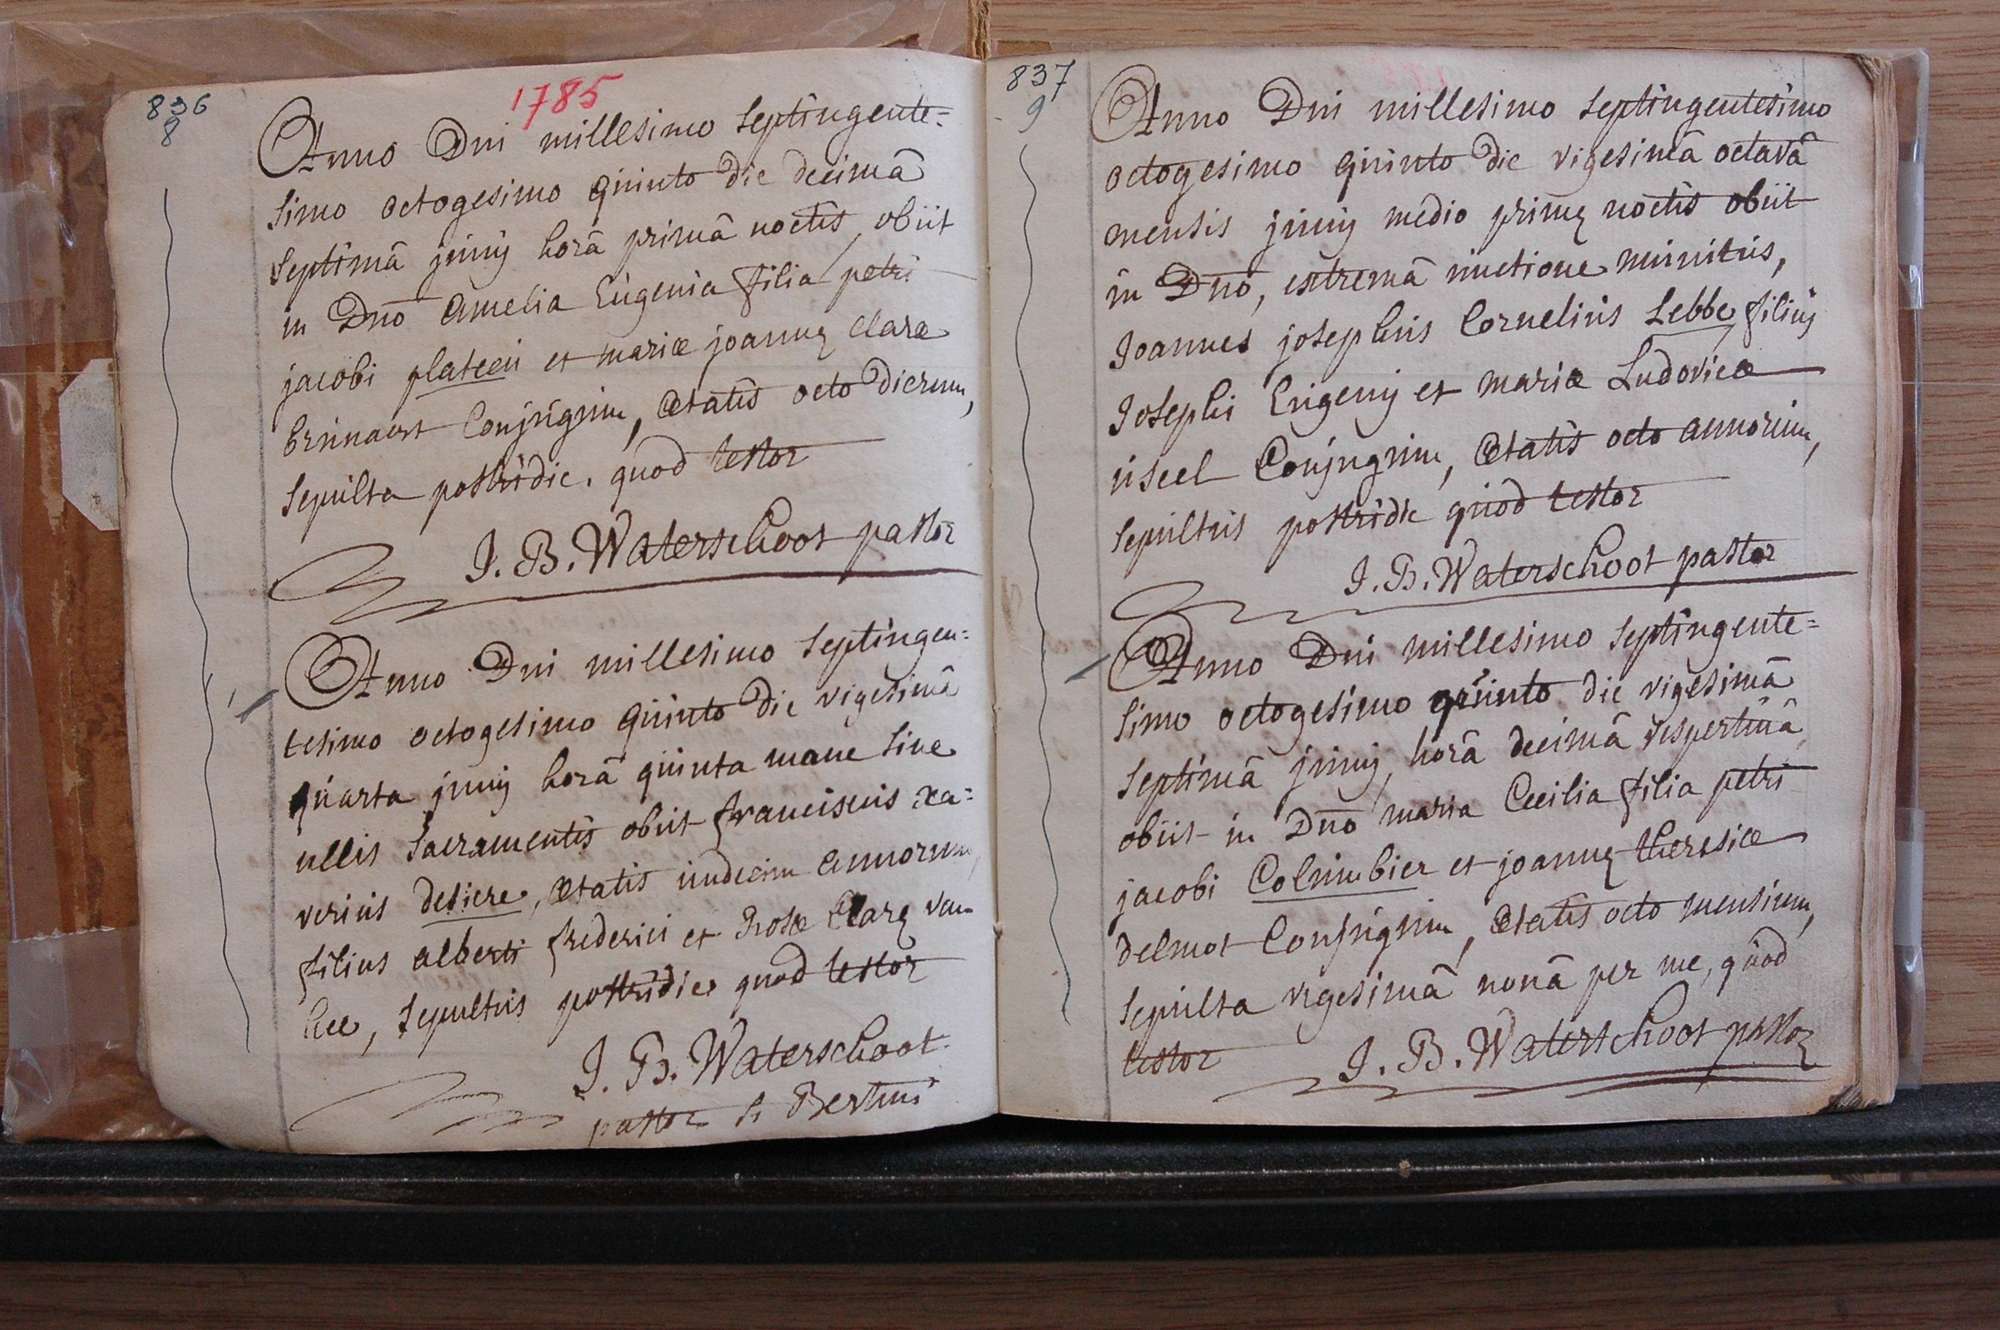 836
8
1785
Anno Dni millesimo septingente=
simo octogesimo quinto die decimâ
septimâ junij horâ primâ noctis, obiit
in Dno Amelia Eugenia filia petri
jacobi plateeii et mariæ joannę claræ
brunaert Conjugum, ætatis octo dierum,
sepulta postridie. quod testor
J. B. Waterschoot pastor
Anno Dni millesimo septingen=
tesimo octogesimo quinto die vigesimâ
quarta junij horâ quinta mane sine
ullis sacramentis obiit franciscus xa=
verius desiere, ætatis undecim annorum,
filius alberti frederici et Rosæ Clarę van
hee, sepultus postridie quod testor
J. B. Waterschoot
pastor St Bertini
837
9
Anno Dni millesimo septingentesimo
octogesimo quinto die vigesimâ octavâ
mensis junij medio primę noctis obiit
in Dno, extremâ unctione munitus,
Joannes josephus Cornelius Lebbe filius
Josephi Eugenij et mariæ Ludovicæ
useel Conjugum, ætatis octo annorum,
sepultus postridie quod testor
J. B. Waterschoot pastor
Anno Dni millesimo septingente=
simo octogesimo quinto die vigesimâ
septimâ junij, horâ decimâ vespertinâ
obiit in Dno maria Cecilia filia petri
jacobi Columbier et joannę theresiæ
delmot Conjugum, ætatis octo mensium,
sepulta vigesimâ nonâ per me, quod
testor J. B. Waterschoot pastor